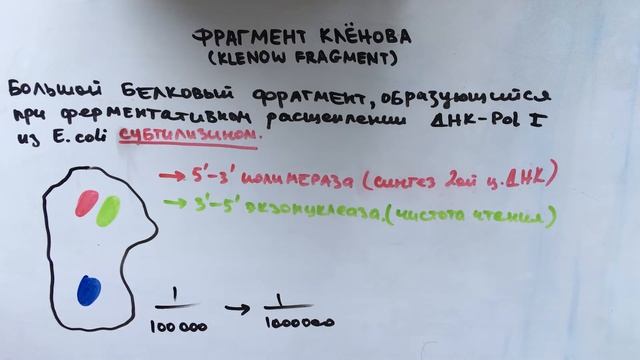 ФРАГМЕНТ КЛЁНОВА
(KLENOW FRAGMENT)
БОЛЬШОЙ БЕЛКОВЫЙ ФРАГМЕНТ, ОБРАЗУЮЩИЙСЯ
при ферментативном расщеплении ДНК-Pol I
из E.coli СУБТИЛИЗИНОМ.
→ 5'-3' полимераза (синтез 2ой ц. ДНК)
→ 3'-5' экзонуклеаза (чистота чтения)
1/100 000 → 1/1000000